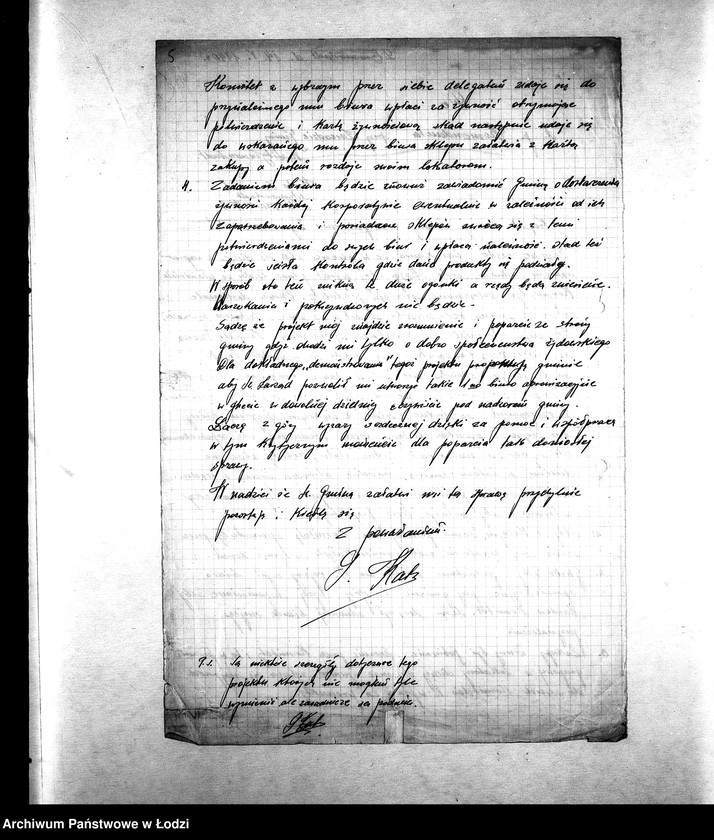 5
Komitet z wybranym przez siebie delegatem udaje się do
przynależnego mu biura wpłaci za żywność otrzymując
potwierdzenie i kartę żywnościową skąd następnie udaje się
do wskazanego mu przez biuro sklepu załatwia z kartą
zakupy a potem rozdaje swoim lokatorom.
4. Zadaniem biura będzie również zawiadomić Gminę o dostarczeniu
żywności każdej kooperatywie ewentualnie w zależności od ich
zapotrzebowania i posiadacze sklepów zwrócą się z temi
potwierdzeniami do swych biur i wpłacą należność. Nad tem
będzie ścisła kontrola gdzie dane produkty się podziały.
W sposób oto ten znikną te duże ogonki a rzędy będą zniesione.
Narzekania i pokrzywdzonych nie będzie.
Sądzę że projekt mój znajdzie zrozumienie i poparcie ze strony
gminy gdyż chodzi mi tylko o dobro społeczeństwa żydowskiego
Dla dokładnego „demonstrowania" tegoż projektu proponuję gminie
aby Sz. Zarząd pozwolił mi utworzyć takie 1no biuro aprowizacyjne
w ghecie w dowolnej dzielnicy oczywiście pod nadzorem gminy.
Łączę z góry wyrazy serdecznej dzięki za pomoc i współpracę
w tym krytycznym momencie dla poparcia tak doniosłej
sprawy.
W nadziei że Sz. Gmina załatwi mi tą sprawę przychylnie
pozostaję i kreślę się
Z poważaniem
S. Katz
P.S. Są niektóre szczegóły dotyczące tego
projektu których nie mogłem tu
wymienić ale zasadnicze są podane.
SKatz
Archiwum Państwowe w Łodzi